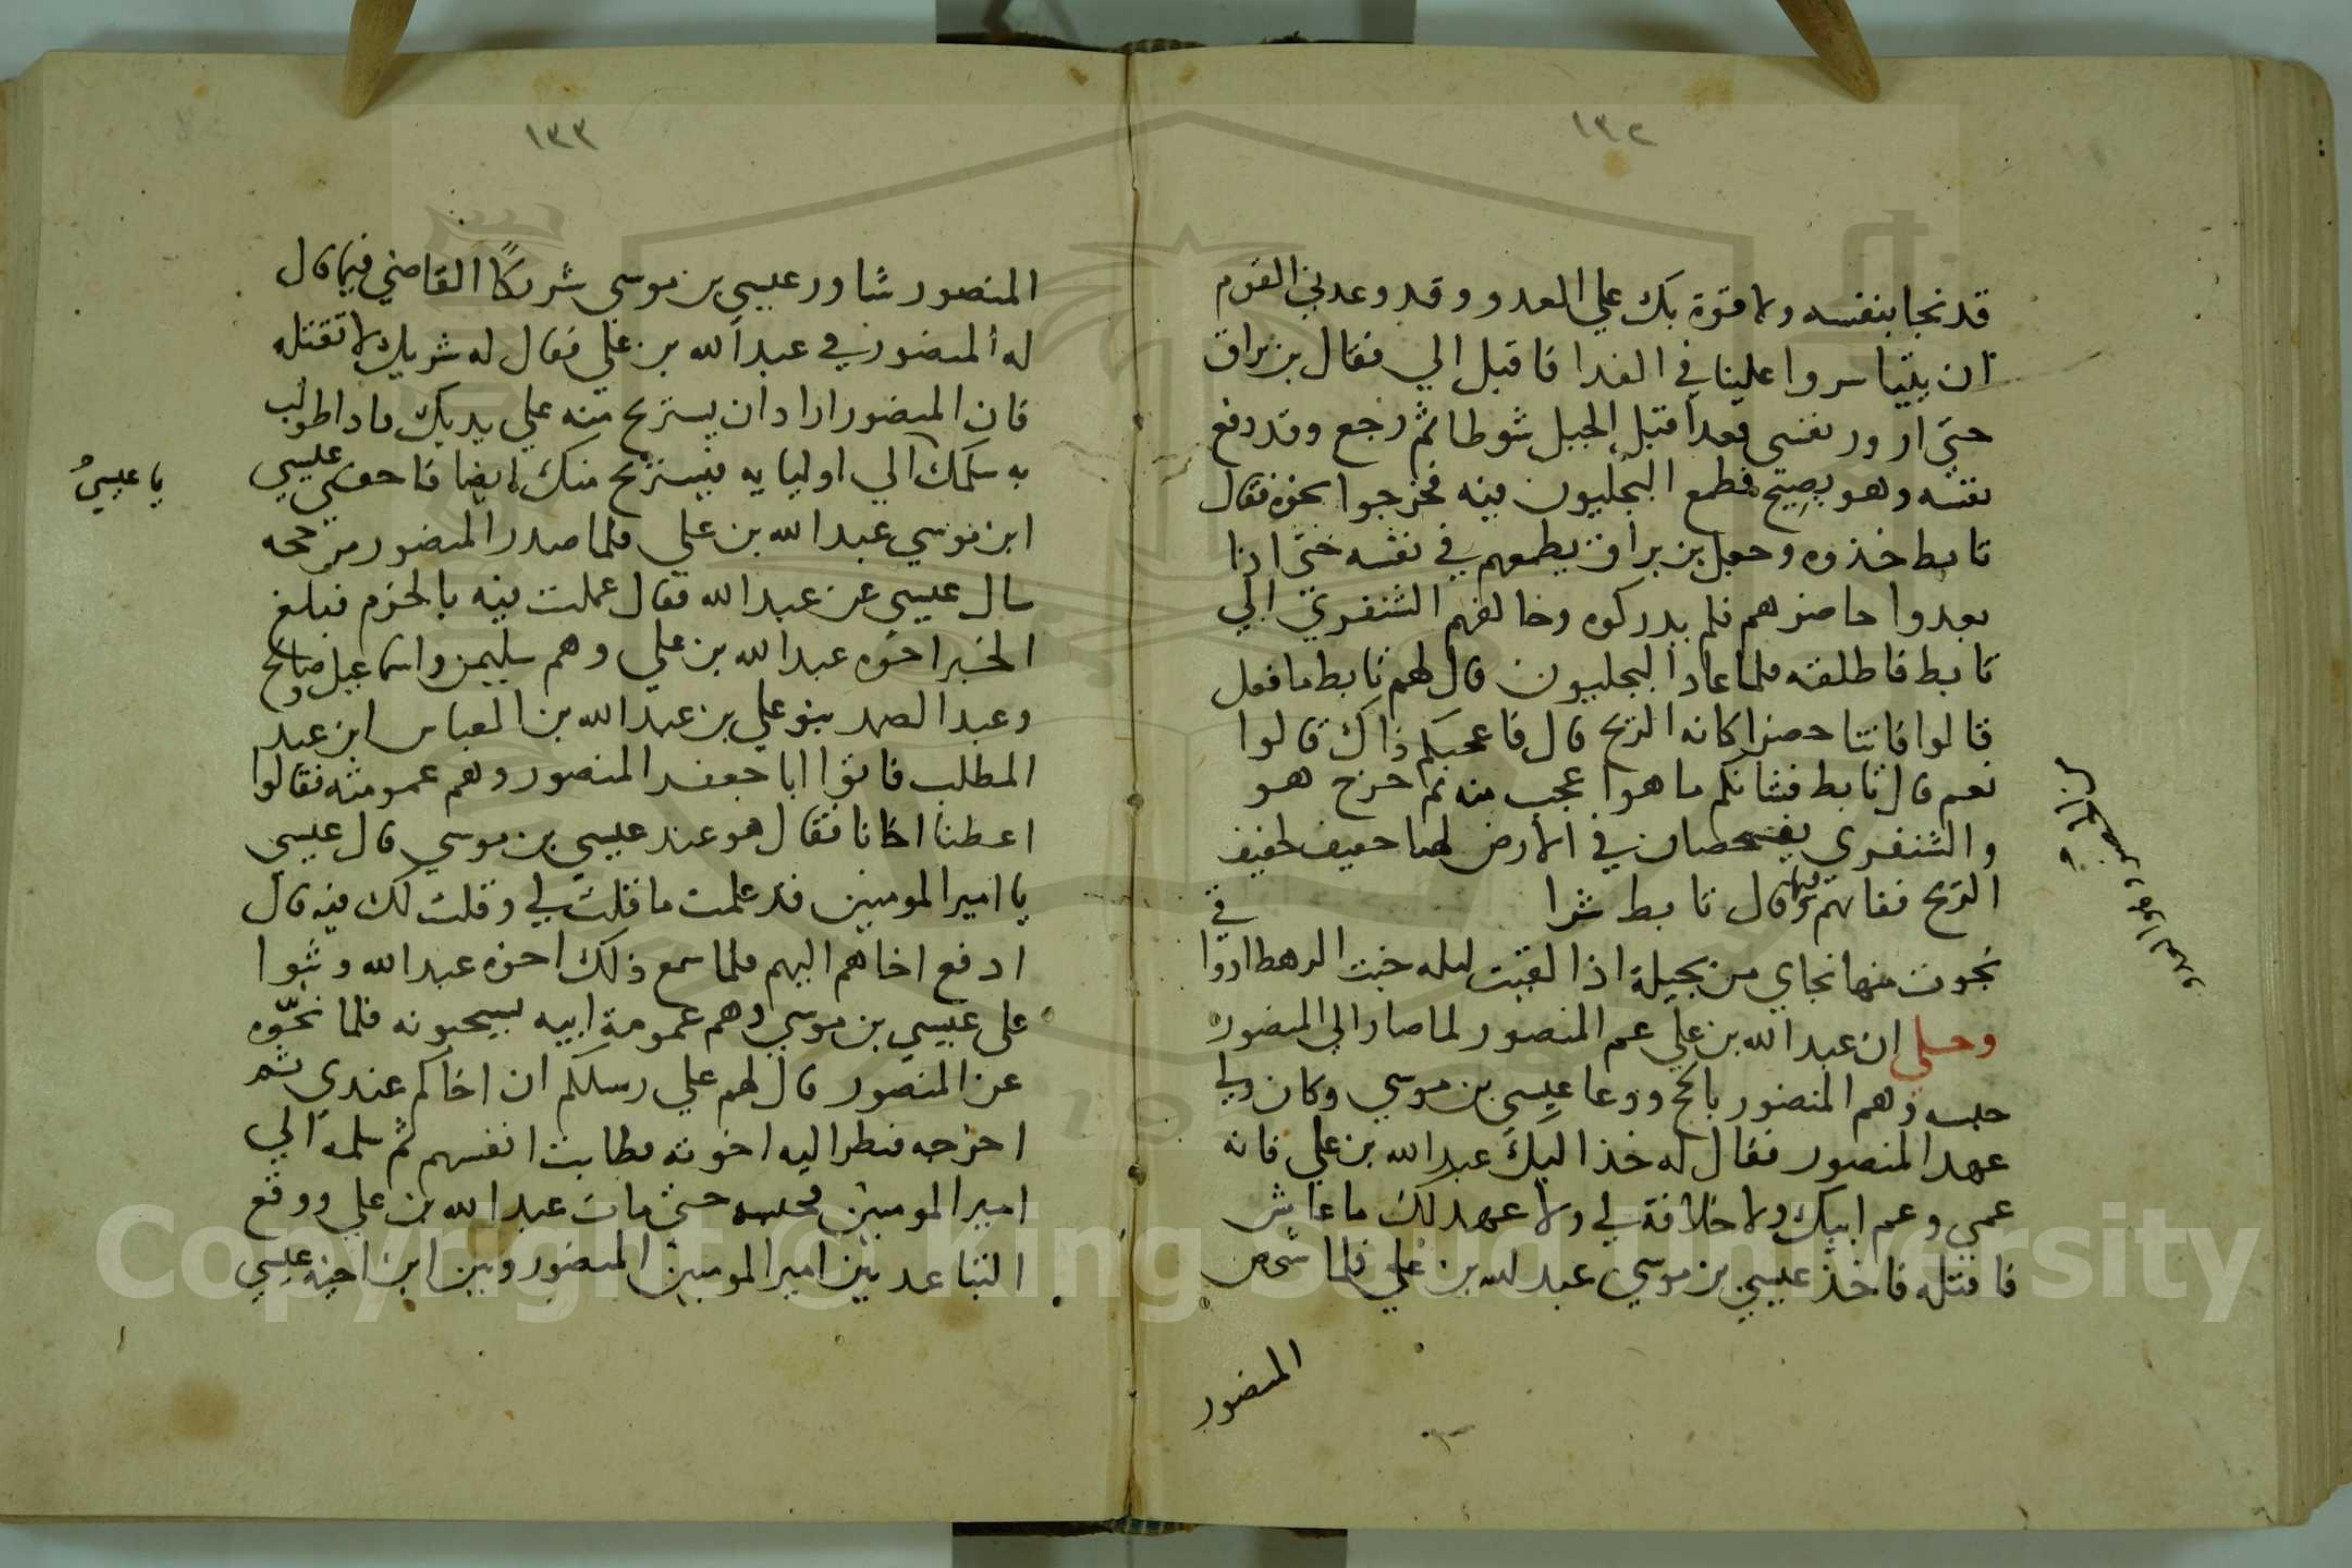 ١٣٢
قد نجا بنفسه ولا قوة بك علي العدو وقد وعدني القوم
ان يتياسروا علينا في الفدا فاقبل الي فقال بن براق
حتي ازور نفسي فعدا قبل الجبل شوطا ثم رجع وقد دفع
نفسه وهو يصيح فطمع البجليون فيه فخرجوا نحوه فقال
تابط خذوه وجعل بن براق يطمعهم في نفسه حتي اذا
بعدوا حاضرهم فلم يدركوه وخالفهم الشنفري الي
تابط فاطلقه فلما عاد البجليون قال لهم تابط ما فعل
قالوا فاتنا حضرا كانه الريح قال فاعجبكم ذاك قالوا
نعم قال تابط فشانكم ما هو اعجب منه ثم خرج هو
والشنفري يفحصان في الارض لهما حفيف كحفيف
الريح ففاتهم وقال تابط شرا في
نجوت منها نجاي من بجيلة اذا لقيت ليله خبت الرهط ارواقي
وحكي ان عبد الله بن علي عم المنصور لما صار الي المنصور
حبسه وهم المنصور بالحج ودعا عيسي بن موسي وكان ولي
عهد المنصور فقال له خذ اليك عبد الله بن علي فانه
عمي وعم ابيك ولا خلافة لي ولا عهد لك ما عاش
فاقتله فاخذ عيسي بن موسي عبد الله بن علي فلما شخص
المنصور
١٣٣
المنصور شاور عيسي بن موسي شريكًا القاضي فيما قال
له المنصور في عبد الله بن علي فقال له شريك لا تقتله
فان المنصور اراد ان يستريح منه علي يديك فاذا طولب
به سلمك الي اوليايه فيستريح منك ايضا فاخفي عيسي
يا عيسي
ابن موسي عبد الله بن علي فلما صدر المنصور من حجه
سال عيسي عن عبد الله فقال عملت فيه بالحزم فبلغ
الخبر اخوه عبد الله بن علي وهم سليمن واسماعيل وصالح
وعبد الصمد بنو علي بن عبد الله بن العباس ابن عبد
المطلب فاتوا ابا جعفر المنصور وهم عمومته فقالوا
اعطنا اخانا فقال هو عند عيسي بن موسي قال عيسي
يا امير المومنين قد علمت ما قلت لي وقلت لك فيه قال
ادفع اخاهم اليهم فلما سمع ذلك اخوه عبد الله وثبوا
علي عيسي بن موسي وهم عمومة ابيه ليسحبونه فلما نحّوه
عن المنصور قال لهم علي رسلكم ان اخاكم عندي ثم
اخرجه فنظر اليه اخوته فطابت انفسهم ثم سلمه الي
امير المومنين فحبسه حتي مات عبد الله بن علي ووقع
التباعد بين امير المومنين المنصور وبين ابن اخيه عيسي
Copyright © King Saud University